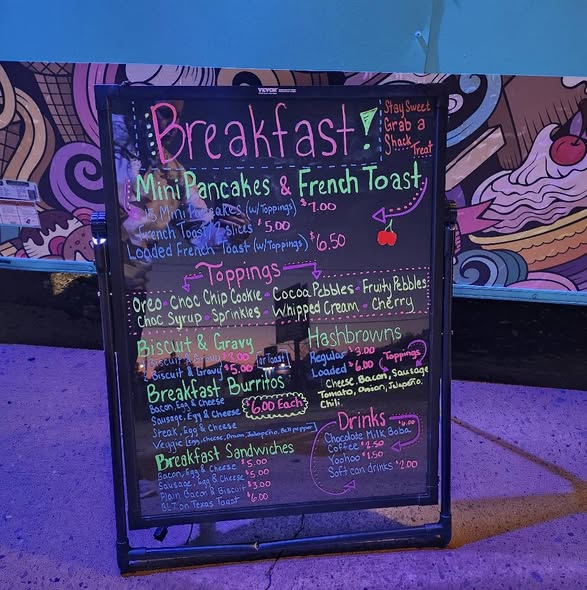 VEVOR
Breakfast!
Stay Sweet
Grab a
Shack
Treat
Mini Pancakes & French Toast
15 Mini Pancakes (w/Toppings) $7.00
French Toast 2 slices $5.00
Loaded French Toast (w/Toppings) $6.50
Toppings
Oreo - Choc Chip Cookie - Cocoa Pebbles - Fruity Pebbles
Choc Syrup - Sprinkles - Whipped Cream - Cherry
Biscuit & Gravy
Biscuit & Gravy
Biscuit & Gravy $5.00
or Toast
Hashbrowns
Regular $3.00
Loaded $6.00
Toppings
Cheese, Bacon, Sausage
Tomato, Onion, Jalapeño,
Chili
Breakfast Burritos
Bacon, Egg & Cheese
Sausage, Egg & Cheese
Steak, Egg & Cheese
Veggie (Egg, cheese, Onion, Jalapeño, Bell pepper)
$6.00 Each
Breakfast Sandwiches
Bacon, Egg & Cheese $5.00
Sausage, Egg & Cheese $5.00
Plain Bacon & Biscuit $3.00
BLT on Texas Toast $6.00
Drinks
Chocolate Milk Boba $6.00
Coffee $2.50
Yoohoo $1.50
Soft can drinks $2.00